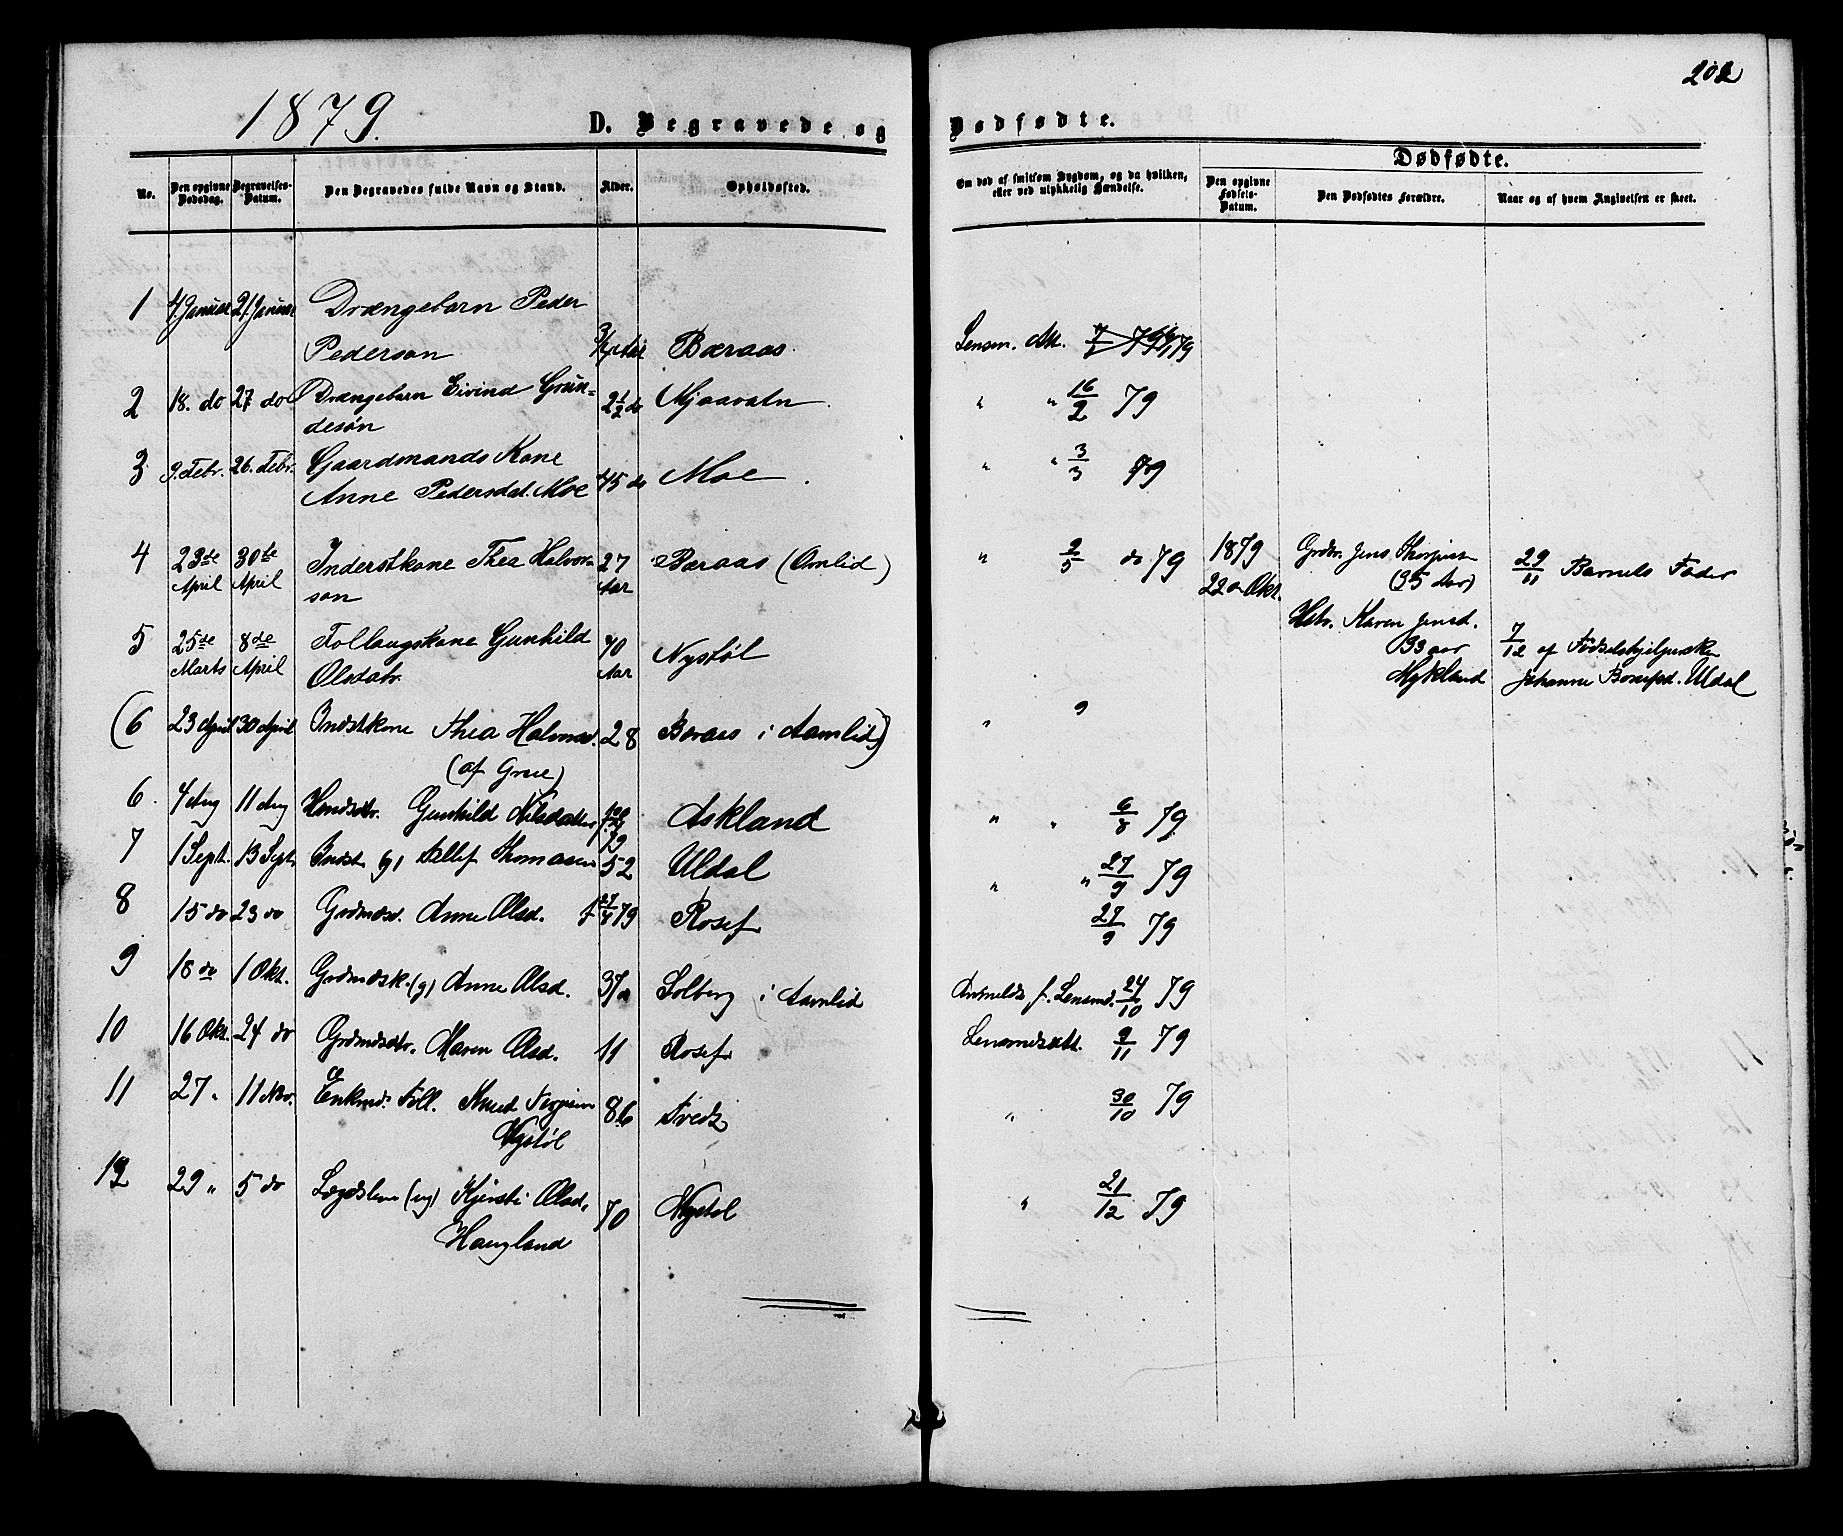 202
1879.
D. Begravede og Dødfødte.
Dødfødte.
No.
Den opgivne Dødsdag.
Begravelses-Datum.
Den Begravedes fulde Navn og Stand.
Alder.
Opholdssted.
Om død af smitsom Sygdom, og da hvilken, eller ved ulykkelig Hændelse.
Den opgivne Fødsels-Datum.
Den Dødfødtes Forældre.
Naar og af hvem Angivelsen er skeet.
1 4 Januar 21. Januar Drængebarn Peder
Pederson Aar Bæraas. Lensm. Att.
2 18. do 27. do Drængebarn Eivind Grun- 2 1/2 do Mjaavatn " " 16/2 79
desøn
3 9. Febr. 26. Febr. Gaardmands Kone
Anne Pedersdat. Moe 45 do Moe. " " 3/3 79
4 23de April 30te April Inderstkone Thea Halvor- 27 Aar Bæraas (Omlid) " 2/5 do 79
son
1879 22 Okt. Jens (35 Aar) 29/11 Barnets Fader
Hstr. Karen Jensd. 33 aar Mykland
7/12 af
Johanne Uldal
5 25de Marts 8de April Follaugskone Gunhild 70 Aar Nystøl
Olsdatr.
(6 23 April 30 April Indstkone Thea Halvorsd. 28 Boraas i Aamlid) "
(af Grue)
6. 4 Aug 11 Aug Gunhild Nilsdatter Askland " " 6/8 79
7 1 Sept. 13 Sept. Indst (g) Tellef Thomasen 52 Uldal " " 27/9 79
8 15 do 23 do Grdmdsd. Anne Olsd. f 27/8 79 Rosef 27/9 79
9 18 do 1 Okt. Grdmdsk. (g) Anne Olsd. 37 a Solberg i Aamlid Anmeldt f. Lensmd. 24/10 79
10 16 Okt. 24 do Grdmdsdtr. Maren Olsd. 11 Rosef Lensmdsatt. 9/11 79
11 27 " 11 Nov. Enkmd. Foll. Knud 86 Tveit " 30/10 79
Nystøl
12 29 " 5 do Lægdslem (ug) Kjersti Olsd. 70 Nystøl " 21/12 79
Haugland